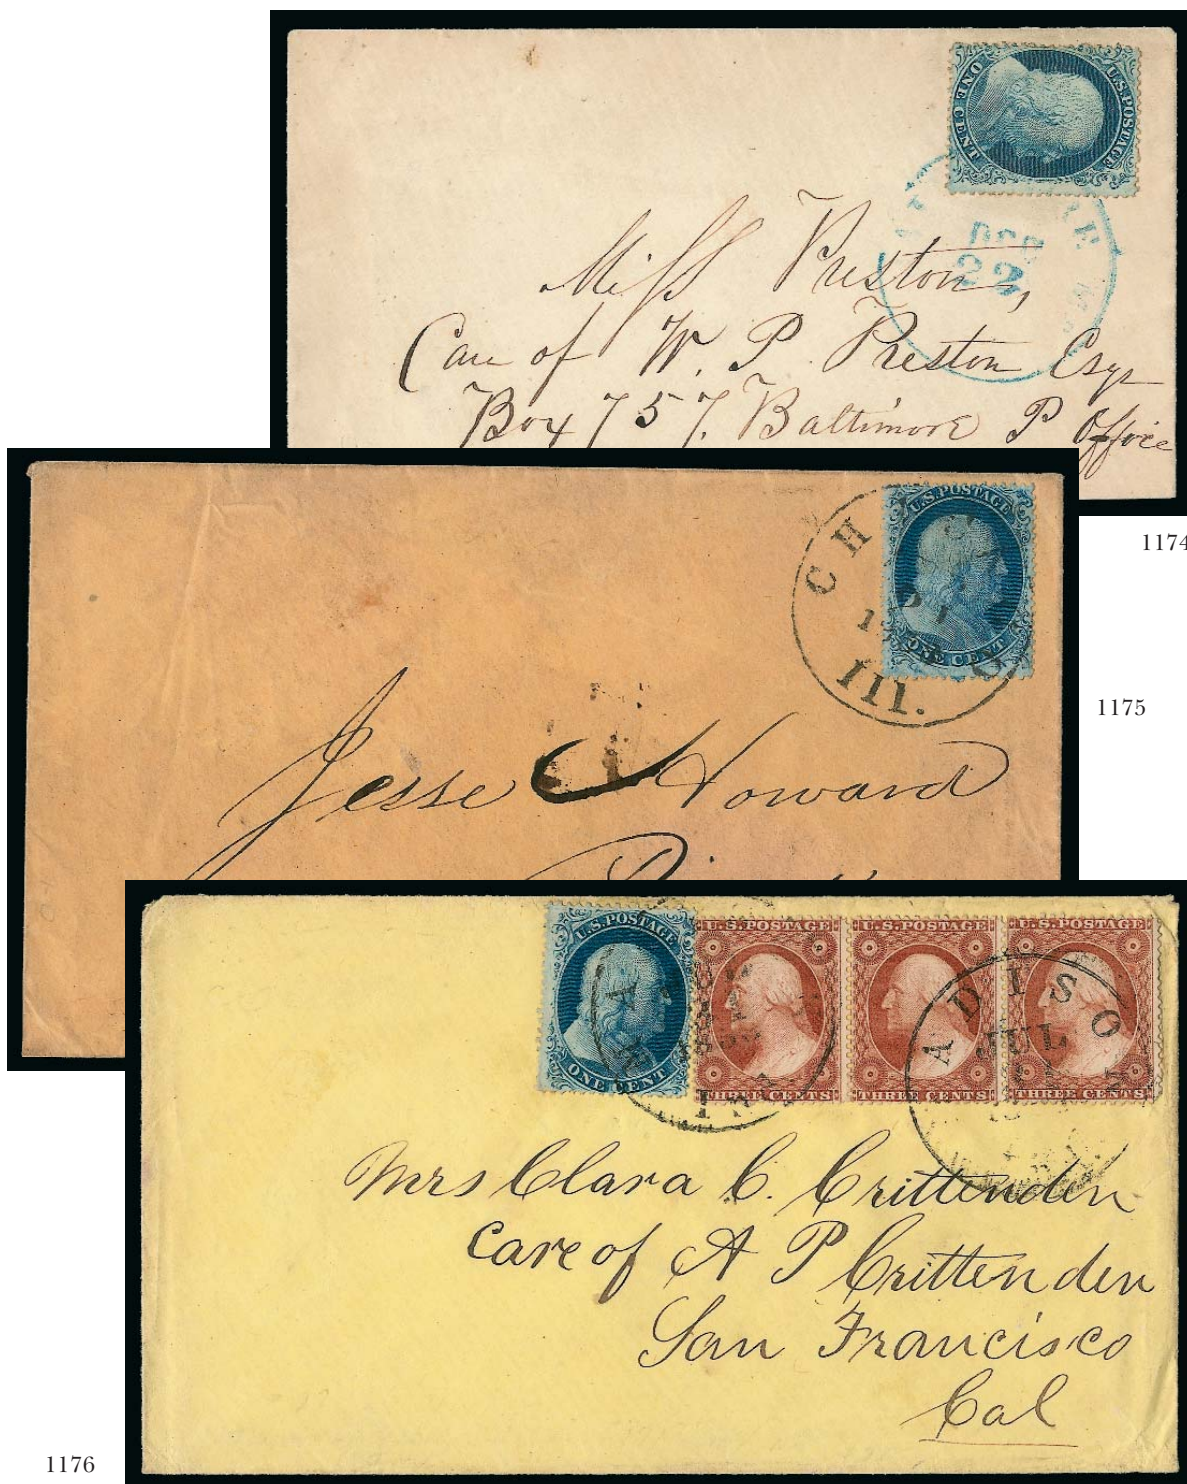 U.S. POSTAGE
ONE CENT
DEC
22
Miss Preston,
Care of W. P. Preston Esqr
Box 757. Baltimore P Office
1174
U.S. POSTAGE
ONE CENT
CH
Ill.
1175
Jesse Howard
U.S. POSTAGE
ONE CENT
U.S. POSTAGE
THREE CENTS
U.S. POSTAGE
THREE CENTS
U.S. POSTAGE
THREE CENTS
ADISON
JUL
Mrs Clara C. Crittenden
Care of A P Crittenden
San Francisco
Cal
1176